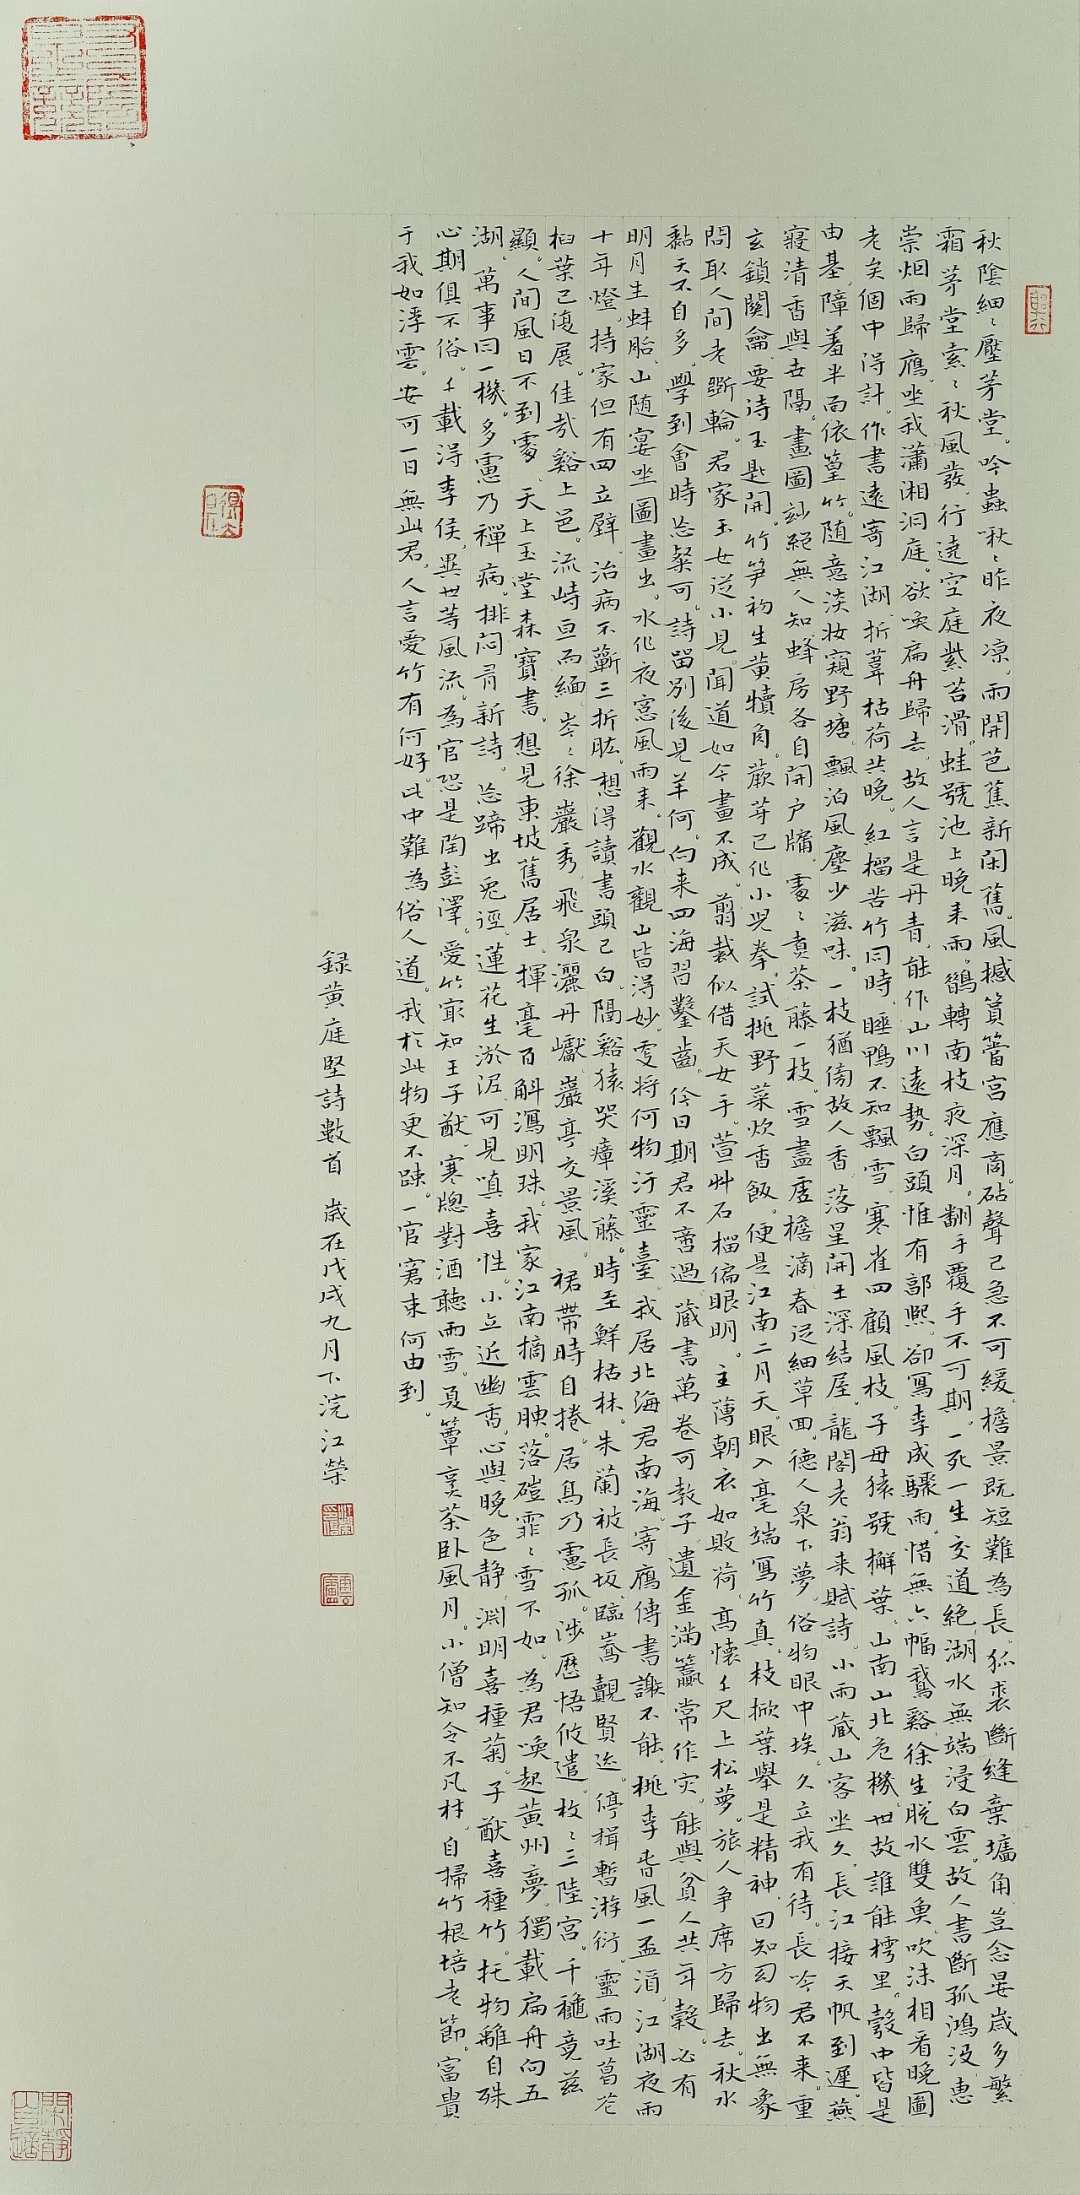 秋陰細〻壓茅堂。吟蟲啾〻昨夜凉。雨開芭蕉新閑舊。風撼篔簹宮應商。砧聲已急不可緩。檐景既短難為長。狐裘斷縫棄墻角。豈念晏歲多繁
霜。茅堂索〻秋風發。行遶空庭紫苔滑。蛙號池上晚来雨。鵲轉南枝夜深月。翻手覆手不可期。一死一生交道絶。湖水無端浸白雲。故人書斷孤鴻没。惠
崇烟雨歸鴈。坐我瀟湘洞庭。欲喚扁舟歸去。故人言是丹青。能作山川遠勢。白頭惟有郭熙。卻寫李成驟雨。惜無六幅鵝谿。徐生脱水雙魚。吹沫相看晚圖
老矣個中得計。作書遠寄江湖。折葦枯荷共晚。紅榴苦竹同時。睡鴨不知飄雪。寒雀四顧風枝。子母猿號槲葉。山南山北危機。世故誰能樗里。彀中皆是
由基。障羞半面依篁竹。随意淡妝窺野塘。飄泊風塵少滋味。一枝猶傍故人香。落星開士深結屋。龍閣老翁来賦詩。小雨蔵山客坐久。長江接天帆到遲。燕
寢清香與世隔。畫圖玅絕無人知。蜂房各自開户牖。處〻煮茶藤一枝。雪盡虛檐滴春從細草回。德人泉下夢。俗物眼中埃。久立我有待。長吟君不来。重
玄鎖関鑰。要待玉匙開。竹笋初生黄犢角。蕨芽已作小児拳。試挑野菜炊香飯。便是江南二月天。眼入毫端寫竹真。枝掀葉舉是精神。因知幻物出無象
問取人間老斲輪。君家玉女從小見。聞道如今畫不成。翦裁似借天女手。萱艸石榴偏眼明。主薄朝衣如敗荷。高懐千尺上松蘿。旅人争席方歸去。秋水
黏天不自多。學到會時忘粲可。詩留別後見羊何。向来四海習鑿齒。今日期君不啻過。蔵書萬卷可教子。遺金滿籯常作灾。能與貧人共年穀。必有
明月生蚌胎。山随宴坐圖畫出。水作夜窓風雨来。觀水觀山皆得妙。更將何物汙靈臺。我居北海君南海。寄鴈傳書謝不能。桃李春風一盃酒。江湖夜雨
十年燈。持家但有四立壁。治病不蘄三折肱。想得讀書頭已白。隔谿猿哭瘴溪藤。時至鮮枯林。朱蘭被長坂。臨嵩覿賢迹。停楫暫游衍。靈雨吐菖花
桕葉已復展。佳哉谿上邑。流峙亘而緬。岑〻徐巖秀。飛泉灑丹巘。巖亭交景風。裙帶時自捲。居鳥乃憲孤。涉歷悟攸遣。枚〻三陸宮。千穐竟兹
顯。人間風日不到處。天上玉堂森寶書。想見東坡舊居士。揮毫百斛瀉明珠。我家江南摘雲腴。落磑霏〻雪不如。為君喚起黄州夢。獨載扁舟向五
湖。萬事同一機。多慮乃禪病。排悶有新詩。忘蹄出兎逕。蓮花生淤泥。可見嗔喜性。小立近幽香。心與晚色静。淵明喜種菊。子猷喜種竹。托物雖自殊
心期俱不俗。千載得李侯。異世等風流。為官恐是陶彭澤。愛竹㝡知王子猷。寒牕對酒聽雨雪。夏簟烹茶卧風月。小僧知令不凡材。自掃竹根培老節。富貴
于我如浮雲。安可一日無此君。人言愛竹有何好。此中難為俗人道。我於此物更不踈。一官窘束何由到。
録黄庭堅詩數首 歲在戊戌九月下浣江榮